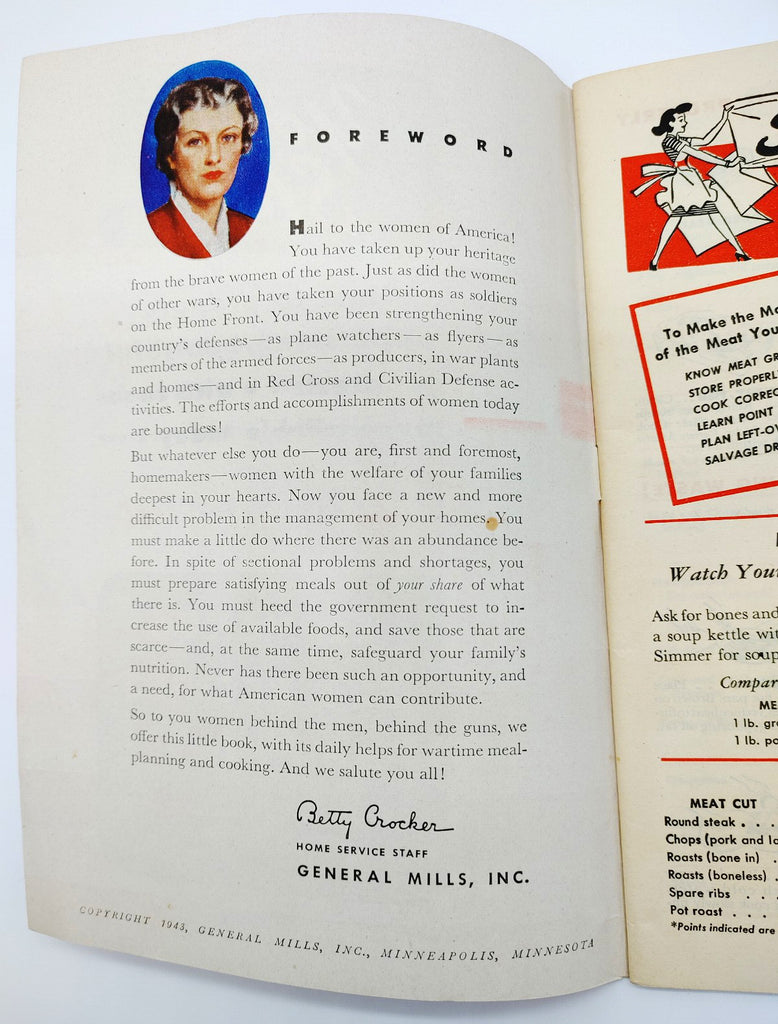 FOREWORD
Hail to the women of America!
You have taken up your heritage
from the brave women of the past. Just as did the women
of other wars, you have taken your positions as soldiers
on the Home Front. You have been strengthening your
country's defenses—as plane watchers—as flyers—as
members of the armed forces—as producers, in war plants
and homes—and in Red Cross and Civilian Defense ac-
tivities. The efforts and accomplishments of women today
are boundless!
But whatever else you do—you are, first and foremost,
homemakers—women with the welfare of your families
deepest in your hearts. Now you face a new and more
difficult problem in the management of your homes. You
must make a little do where there was an abundance be-
fore. In spite of sectional problems and shortages, you
must prepare satisfying meals out of your share of what
there is. You must heed the government request to in-
crease the use of available foods, and save those that are
scarce—and, at the same time, safeguard your family's
nutrition. Never has there been such an opportunity, and
a need, for what American women can contribute.
So to you women behind the men, behind the guns, we
offer this little book, with its daily helps for wartime meal-
planning and cooking. And we salute you all!
Betty Crocker
HOME SERVICE STAFF
GENERAL MILLS, INC.
COPYRIGHT 1943, GENERAL MILLS, INC., MINNEAPOLIS, MINNESOTA
To Make the Mo
of the Meat You
KNOW MEAT GR
STORE PROPERL
COOK CORREC
LEARN POINT
PLAN LEFT-OV
SALVAGE DR
Watch Your
Ask for bones and
a soup kettle wit
Simmer for soup
Compar
ME
1 lb. gr
1 lb. po
MEAT CUT
Round steak . . .
Chops (pork and la
Roasts (bone in) .
Roasts (boneless) .
Spare ribs . . .
Pot roast . . .
*Points indicated are